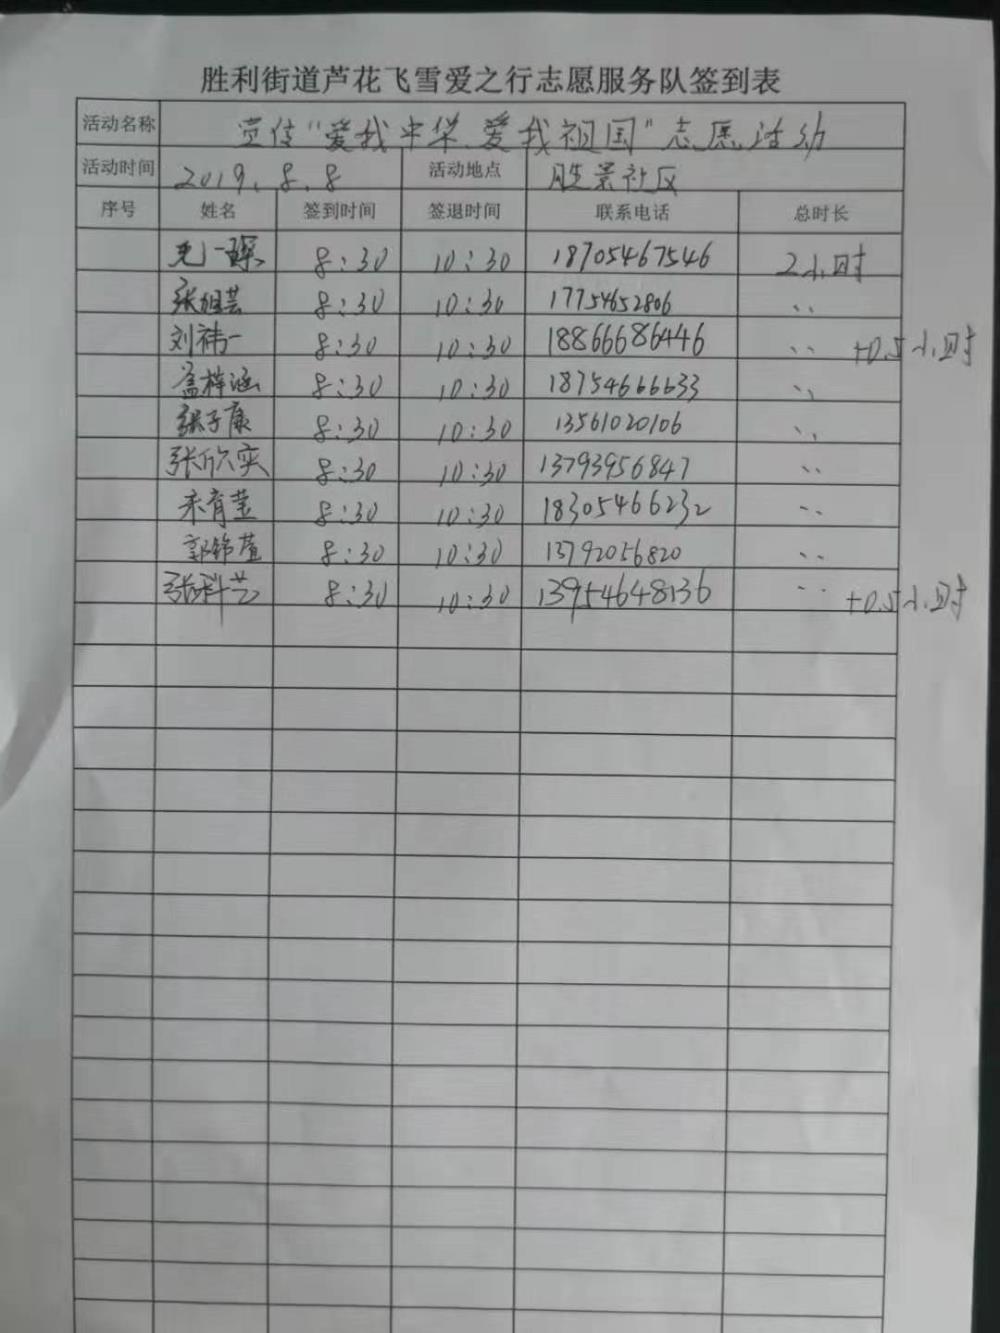 胜利街道芦花飞雪爱之行志愿服务队签到表
活动名称 宣传“爱我中华、爱我祖国”志愿活动
活动时间 2019.8.8 活动地点 胜景社区
序号 姓名 签到时间 签退时间 联系电话 总时长
8:30 10:30 18705467546 2小时
8:30 10:30 17754652806 、、
刘祎一 8:30 10:30 18866686446 、、 +0.5小时
孟梓涵 8:30 10:30 18754666633 、、
张子康 8:30 10:30 13561020106 、、
张欣实 8:30 10:30 13793956847 、、
8:30 10:30 18305466232 、、
郭锦萱 8:30 10:30 13792056820 、、
张科艺 8:30 10:30 13954648136 、、 +0.5小时